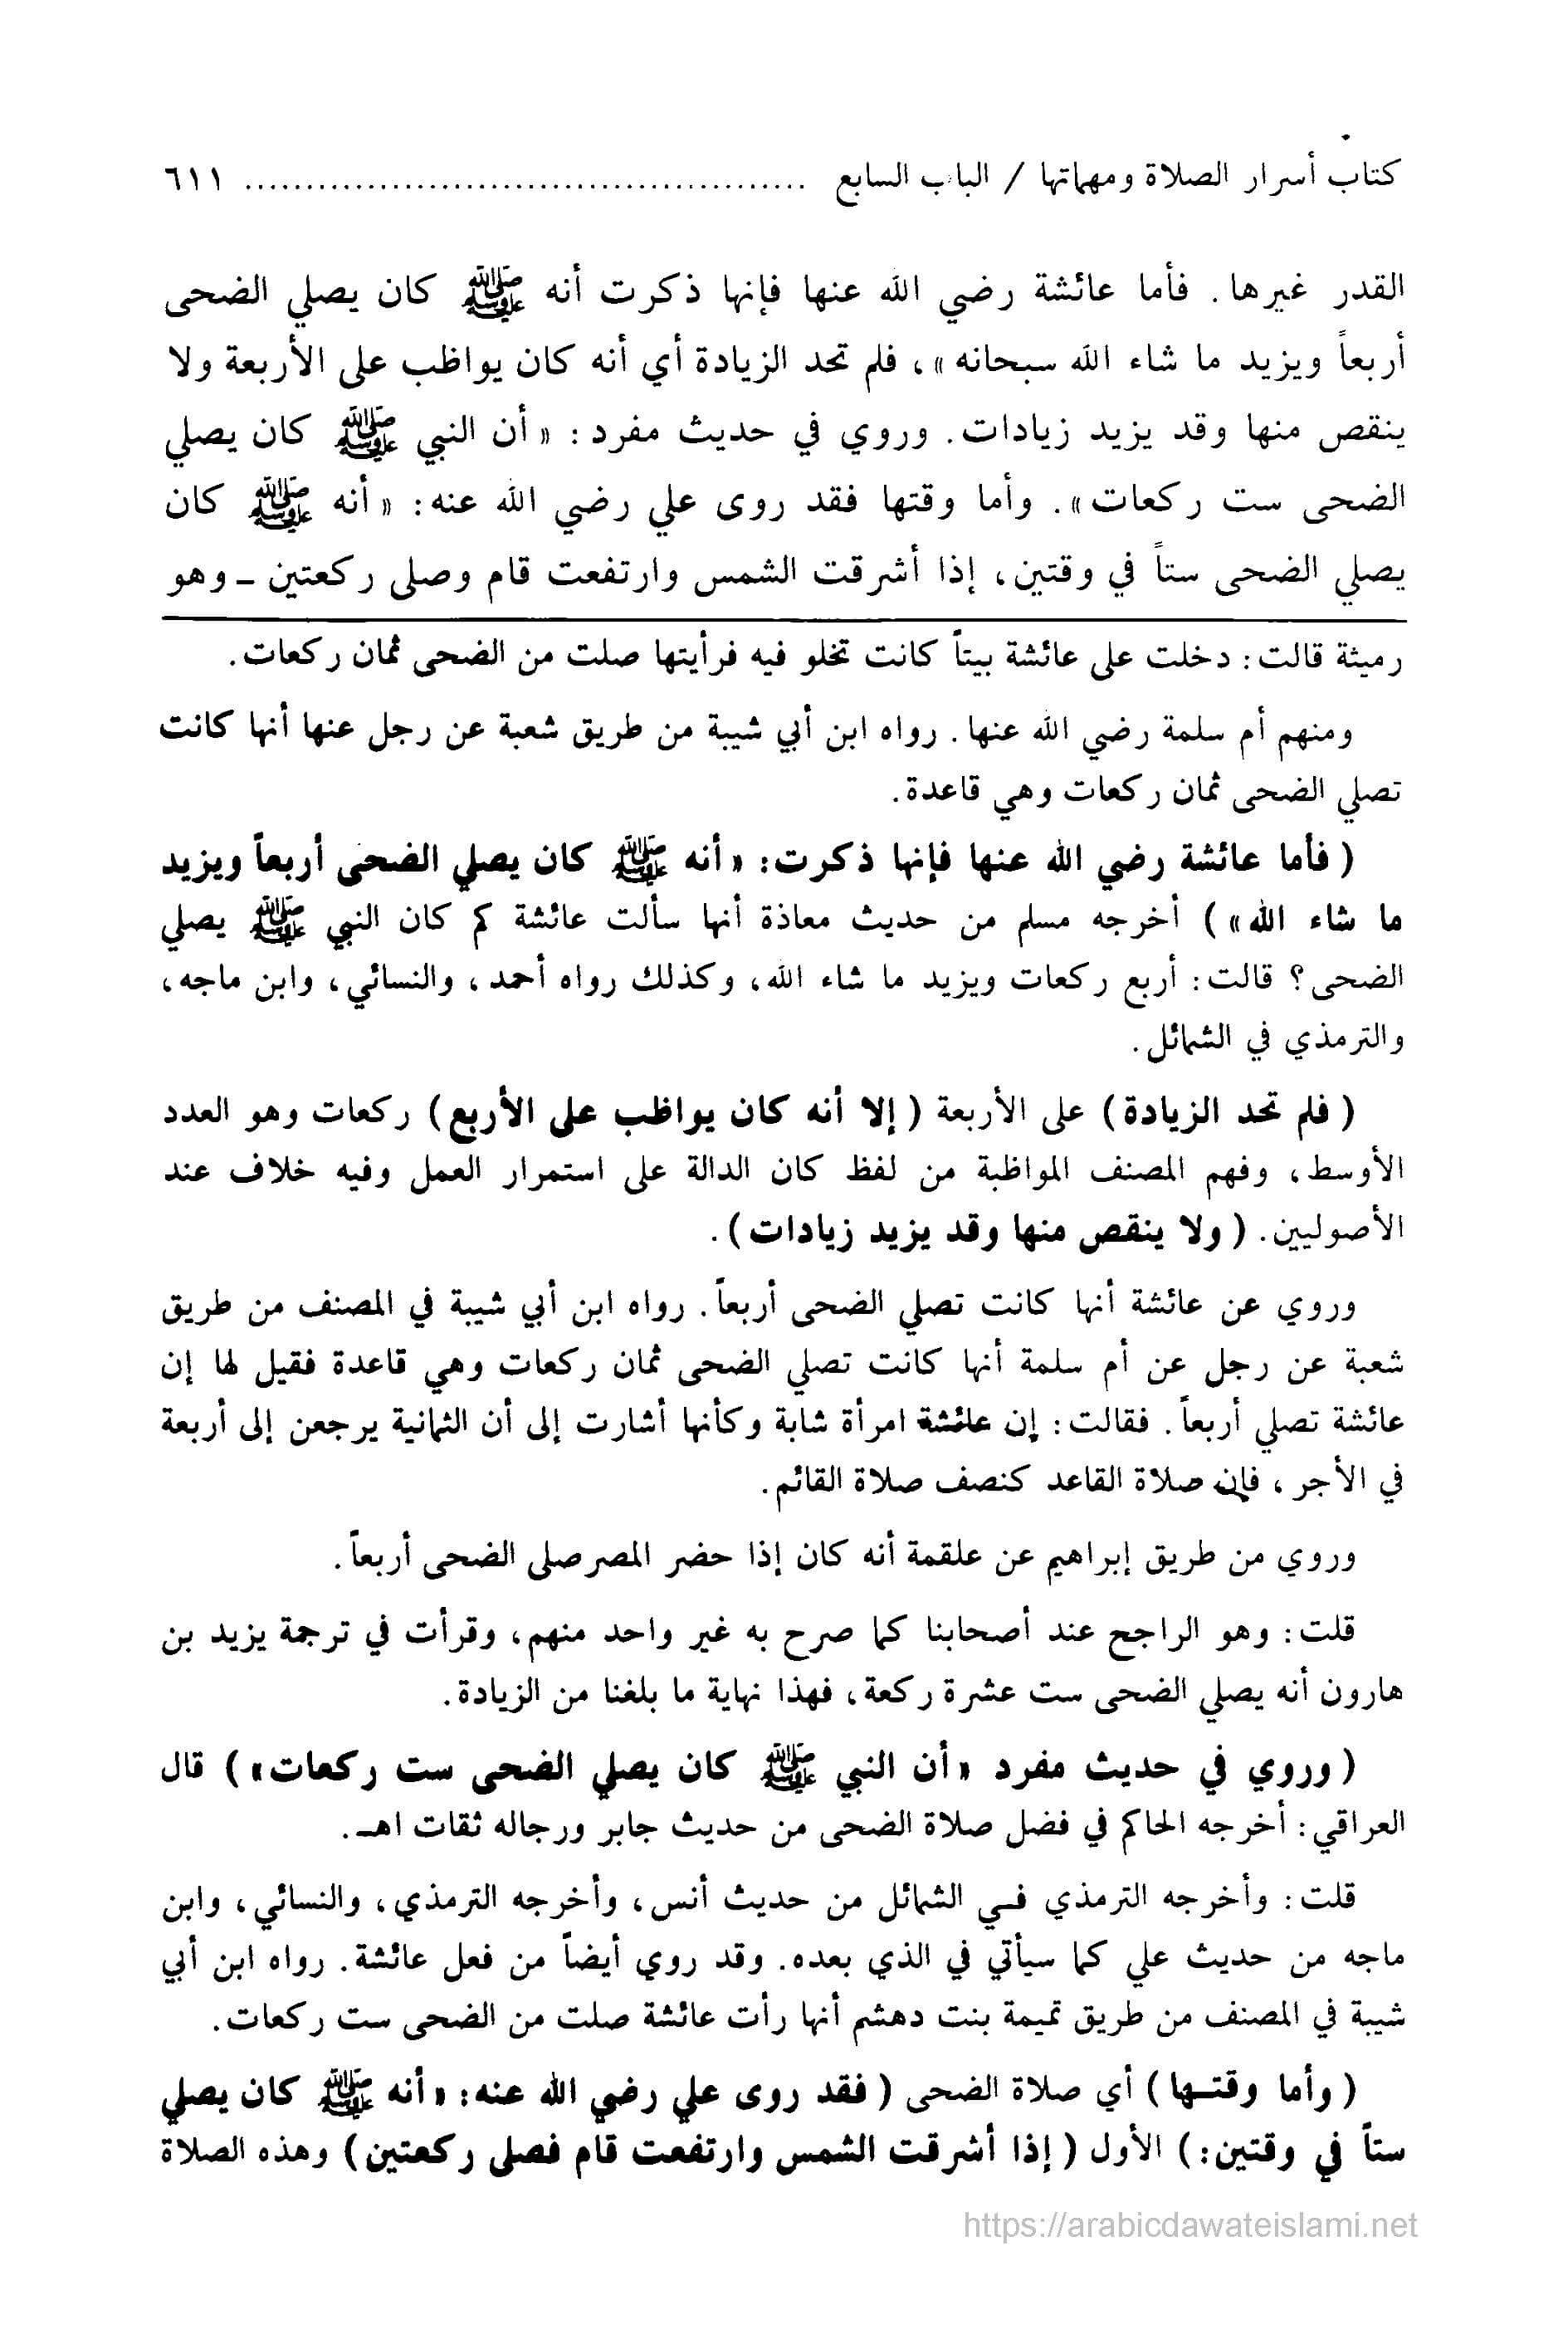 كتاب أسرار الصلاة ومهماتها / الباب السابع .............................................. ٦١١
القدر غيرها. فأما عائشة رضي الله عنها فإنها ذكرت أنه ﷺ كان يصلي الضحى
أربعاً ويزيد ما شاء الله سبحانه»، فلم تحد الزيادة أي أنه كان يواظب على الأربعة ولا
ينقص منها وقد يزيد زيادات. وروي في حديث مفرد: «أن النبي ﷺ كان يصلي
الضحى ست ركعات». وأما وقتها فقد روى علي رضي الله عنه: «أنه ﷺ كان
يصلي الضحى ستاً في وقتين، إذا أشرقت الشمس وارتفعت قام وصلى ركعتين ـ وهو
رميثة قالت: دخلت على عائشة بيتاً كانت تخلو فيه فرأيتها صلت من الضحى ثمان ركعات.
ومنهم أم سلمة رضي الله عنها. رواه ابن أبي شيبة من طريق شعبة عن رجل عنها أنها كانت
تصلي الضحى ثمان ركعات وهي قاعدة.
(فأما عائشة رضي الله عنها فإنها ذكرت: «أنه ﷺ كان يصلي الضحى أربعاً ويزيد
ما شاء الله») أخرجه مسلم من حديث معاذة أنها سألت عائشة كم كان النبي ﷺ يصلي
الضحى؟ قالت: أربع ركعات ويزيد ما شاء الله، وكذلك رواه أحمد، والنسائي، وابن ماجه،
والترمذي في الشمائل.
(فلم تحد الزيادة) على الأربعة (إلا أنه كان يواظب على الأربع) ركعات وهو العدد
الأوسط، وفهم المصنف المواظبة من لفظ كان الدالة على استمرار العمل وفيه خلاف عند
الأصوليين. (ولا ينقص منها وقد يزيد زيادات).
وروي عن عائشة أنها كانت تصلي الضحى أربعاً. رواه ابن أبي شيبة في المصنف من طريق
شعبة عن رجل عن أم سلمة أنها كانت تصلي الضحى ثمان ركعات وهي قاعدة فقيل لها إن
عائشة تصلي أربعاً. فقالت: إن عائشة امرأة شابة وكأنها أشارت إلى أن الثمانية يرجعن إلى أربعة
في الأجر، فإن صلاة القاعد كنصف صلاة القائم.
وروي من طريق إبراهيم عن علقمة أنه كان إذا حضر المصر صلى الضحى أربعاً.
قلت: وهو الراجح عند أصحابنا كما صرح به غير واحد منهم، وقرأت في ترجمة يزيد بن
هارون أنه يصلي الضحى ست عشرة ركعة، فهذا نهاية ما بلغنا من الزيادة.
(وروي في حديث مفرد «أن النبي ﷺ كان يصلي الضحى ست ركعات») قال
العراقي: أخرجه الحاكم في فضل صلاة الضحى من حديث جابر ورجاله ثقات اهـ.
قلت: وأخرجه الترمذي في الشمائل من حديث أنس، وأخرجه الترمذي، والنسائي، وابن
ماجه من حديث علي كما سيأتي في الذي بعده. وقد روي أيضاً من فعل عائشة. رواه ابن أبي
شيبة في المصنف من طريق تميمة بنت دهشم أنها رأت عائشة صلت من الضحى ست ركعات.
(وأما وقتها) أي صلاة الضحى (فقد روى علي رضي الله عنه: «أنه ﷺ كان يصلي
ستاً في وقتين:) الأول (إذا أشرقت الشمس وارتفعت قام فصلى ركعتين) وهذه الصلاة
https://arabicdawateislami.net